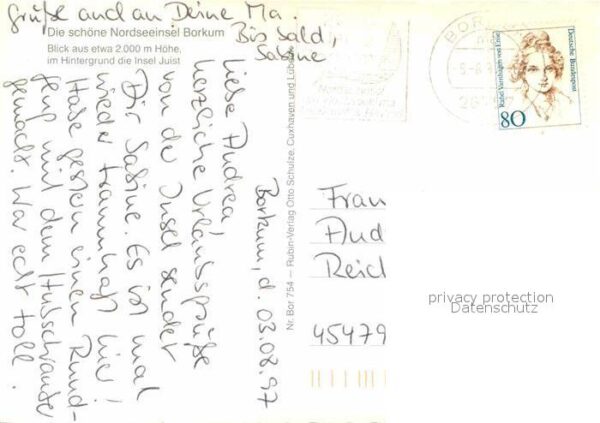 Die schöne Nordseeinsel Borkum
Blick aus etwa 2.000 m Höhe,
im Hintergrund die Insel Juist
Borkum, d. 03.08.97
Liebe Andrea,
herzliche Urlaubsgrüße
von der Insel sendet
Dir Sabine. Es ist mal
wieder traumhaft hier!
Habe gestern einen Rund-
flug mit dem Hubschrauber
gemacht. War echt toll.
Grüße auch an Deine Ma.
Bis bald,
Sabine
Nr. Bor 754 — Rubin-Verlag Otto Schulze, Cuxhaven und Lübeck
BOR
Deutsche Bundespost
Rahel Varnhagen von Ense
80
Frau
And
Reich
45479
privacy protection
Datenschutz